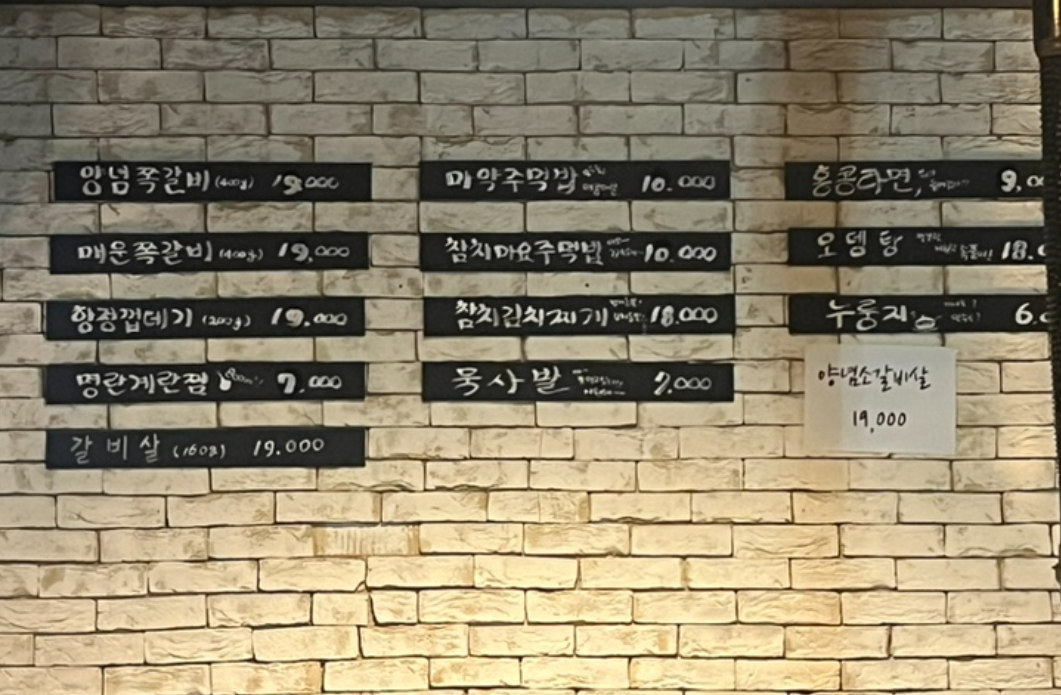 양념쪽갈비 (400g) 19.000
매운쪽갈비 (400g) 19,000
항정껍데기 (200g) 19.000
명란계란찜 7,000
갈비살 (160g) 19.000
마약주먹밥 10.000
참치마요주먹밥 10.000
참치김치찌개 18.000
묵사발 7,000
홍콩라면, 9,0
오뎅탕 18.0
누룽지 6.0
양념소갈비살
19,000